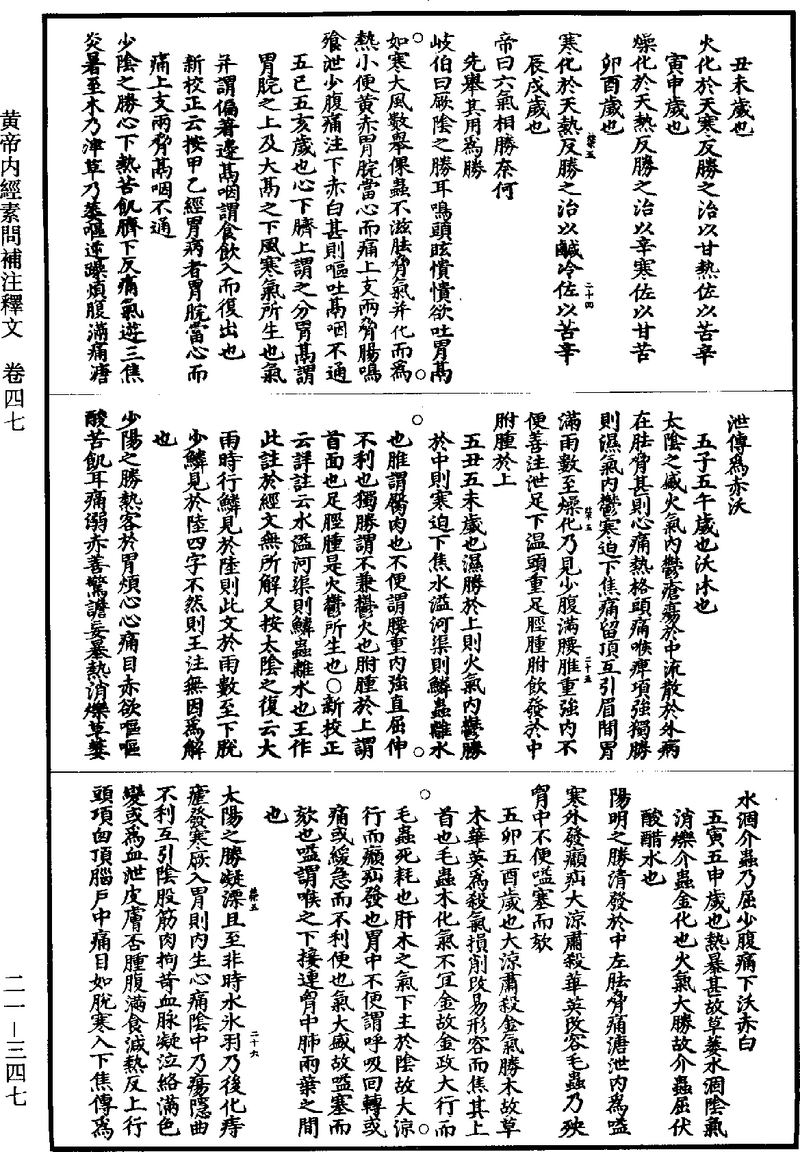 黄帝内經素問補注釋文　卷四七
二一—三四七
丑未歲也
火化於天寒反勝之治以甘熱佐以苦辛
寅申歲也
燥化於天熱反勝之治以辛寒佐以甘苦
卯酉歲也
寒化於天熱反勝之治以鹹冷佐以苦辛
辰戌歲也
帝曰六氣相勝奈何
先舉其用爲勝
岐伯曰厥陰之勝耳鳴頭眩憒憒欲吐胃鬲
如寒大風數舉倮蟲不滋胠脅氣并化而爲
熱小便黄赤胃脘當心而痛上支兩脅腸鳴
飱泄少腹痛注下赤白甚則嘔吐鬲咽不通
五巳五亥歲也心下臍上謂之分胃鬲謂
胃脘之上及大鬲之下風寒氣所生也氣
并謂偏著邊鬲咽謂食飲入而復出也
新校正云按甲乙經胃病者胃脘當心而
痛上支兩脅鬲咽不通
少陰之勝心下熱苦飢臍下反痛氣遊三焦
炎暑至木乃津草乃萎嘔逆躁煩腹滿痛溏
泄傳爲赤沃
五子五午歲也沃沫也
太陰之勝火氣内鬱瘡瘍於中流散於外病
在胠脅甚則心痛熱格頭痛喉痺項強獨勝
則濕氣内鬱寒迫下焦痛留頂互引眉間胃
滿雨數至燥化乃見少腹滿腰脽重強内不
便善注泄足下温頭重足脛腫胕飲發於中
胕腫於上
五丑五未歲也濕勝於上則火氣内鬱勝
於中則寒迫下焦水溢河渠則鱗蟲離水
也脽謂臀肉也不便謂腰重内強直屈伸
不利也獨勝謂不兼鬱火也胕腫於上謂
首面也足脛腫是火鬱所生也○新校正
云詳註云水溢河渠則鱗蟲離水也王作
此註於經文無所解又按太陰之復云大
雨時行鱗見於陸則此文於雨數至下脫
少鱗見於陸四字不然則王注無因爲解
也
少陽之勝熱客於胃煩心心痛目赤欲嘔嘔
酸苦飢耳痛溺赤善驚譫妄暴熱消爍草萎
水涸介蟲乃屈少腹痛下沃赤白
五寅五申歲也熱暴甚故草萎水涸陰氣
消爍介蟲金化也火氣大勝故介蟲屈伏
酸醋水也
陽明之勝清發於中左胠脅痛溏泄内爲嗌
塞外發癩疝大涼肅殺華英改容毛蟲乃殃
胷中不便嗌塞而欬
五卯五酉歲也大涼肅殺金氣勝木故草
木華英爲殺氣損削改易形容而焦其上
首也毛蟲木化氣不宜金故金政大行而
毛蟲死耗也肝木之氣下主於陰故大涼
行而癩疝發也胃中不便謂呼吸回轉或
痛或緩急而不利便也氣大盛故嗌塞而
欬也嗌謂喉之下接連胷中肺兩葉之間
也
太陽之勝凝溧且至非時水氷羽乃後化痔
瘧發寒厥入胃則内生心痛陰中乃瘍隱曲
不利互引陰股筋肉拘苛血脉凝泣絡滿色
變或爲血泄皮膚否腫腹滿食減熱反上行
頭項囟頂腦戶中痛目如脫寒入下焦傳爲